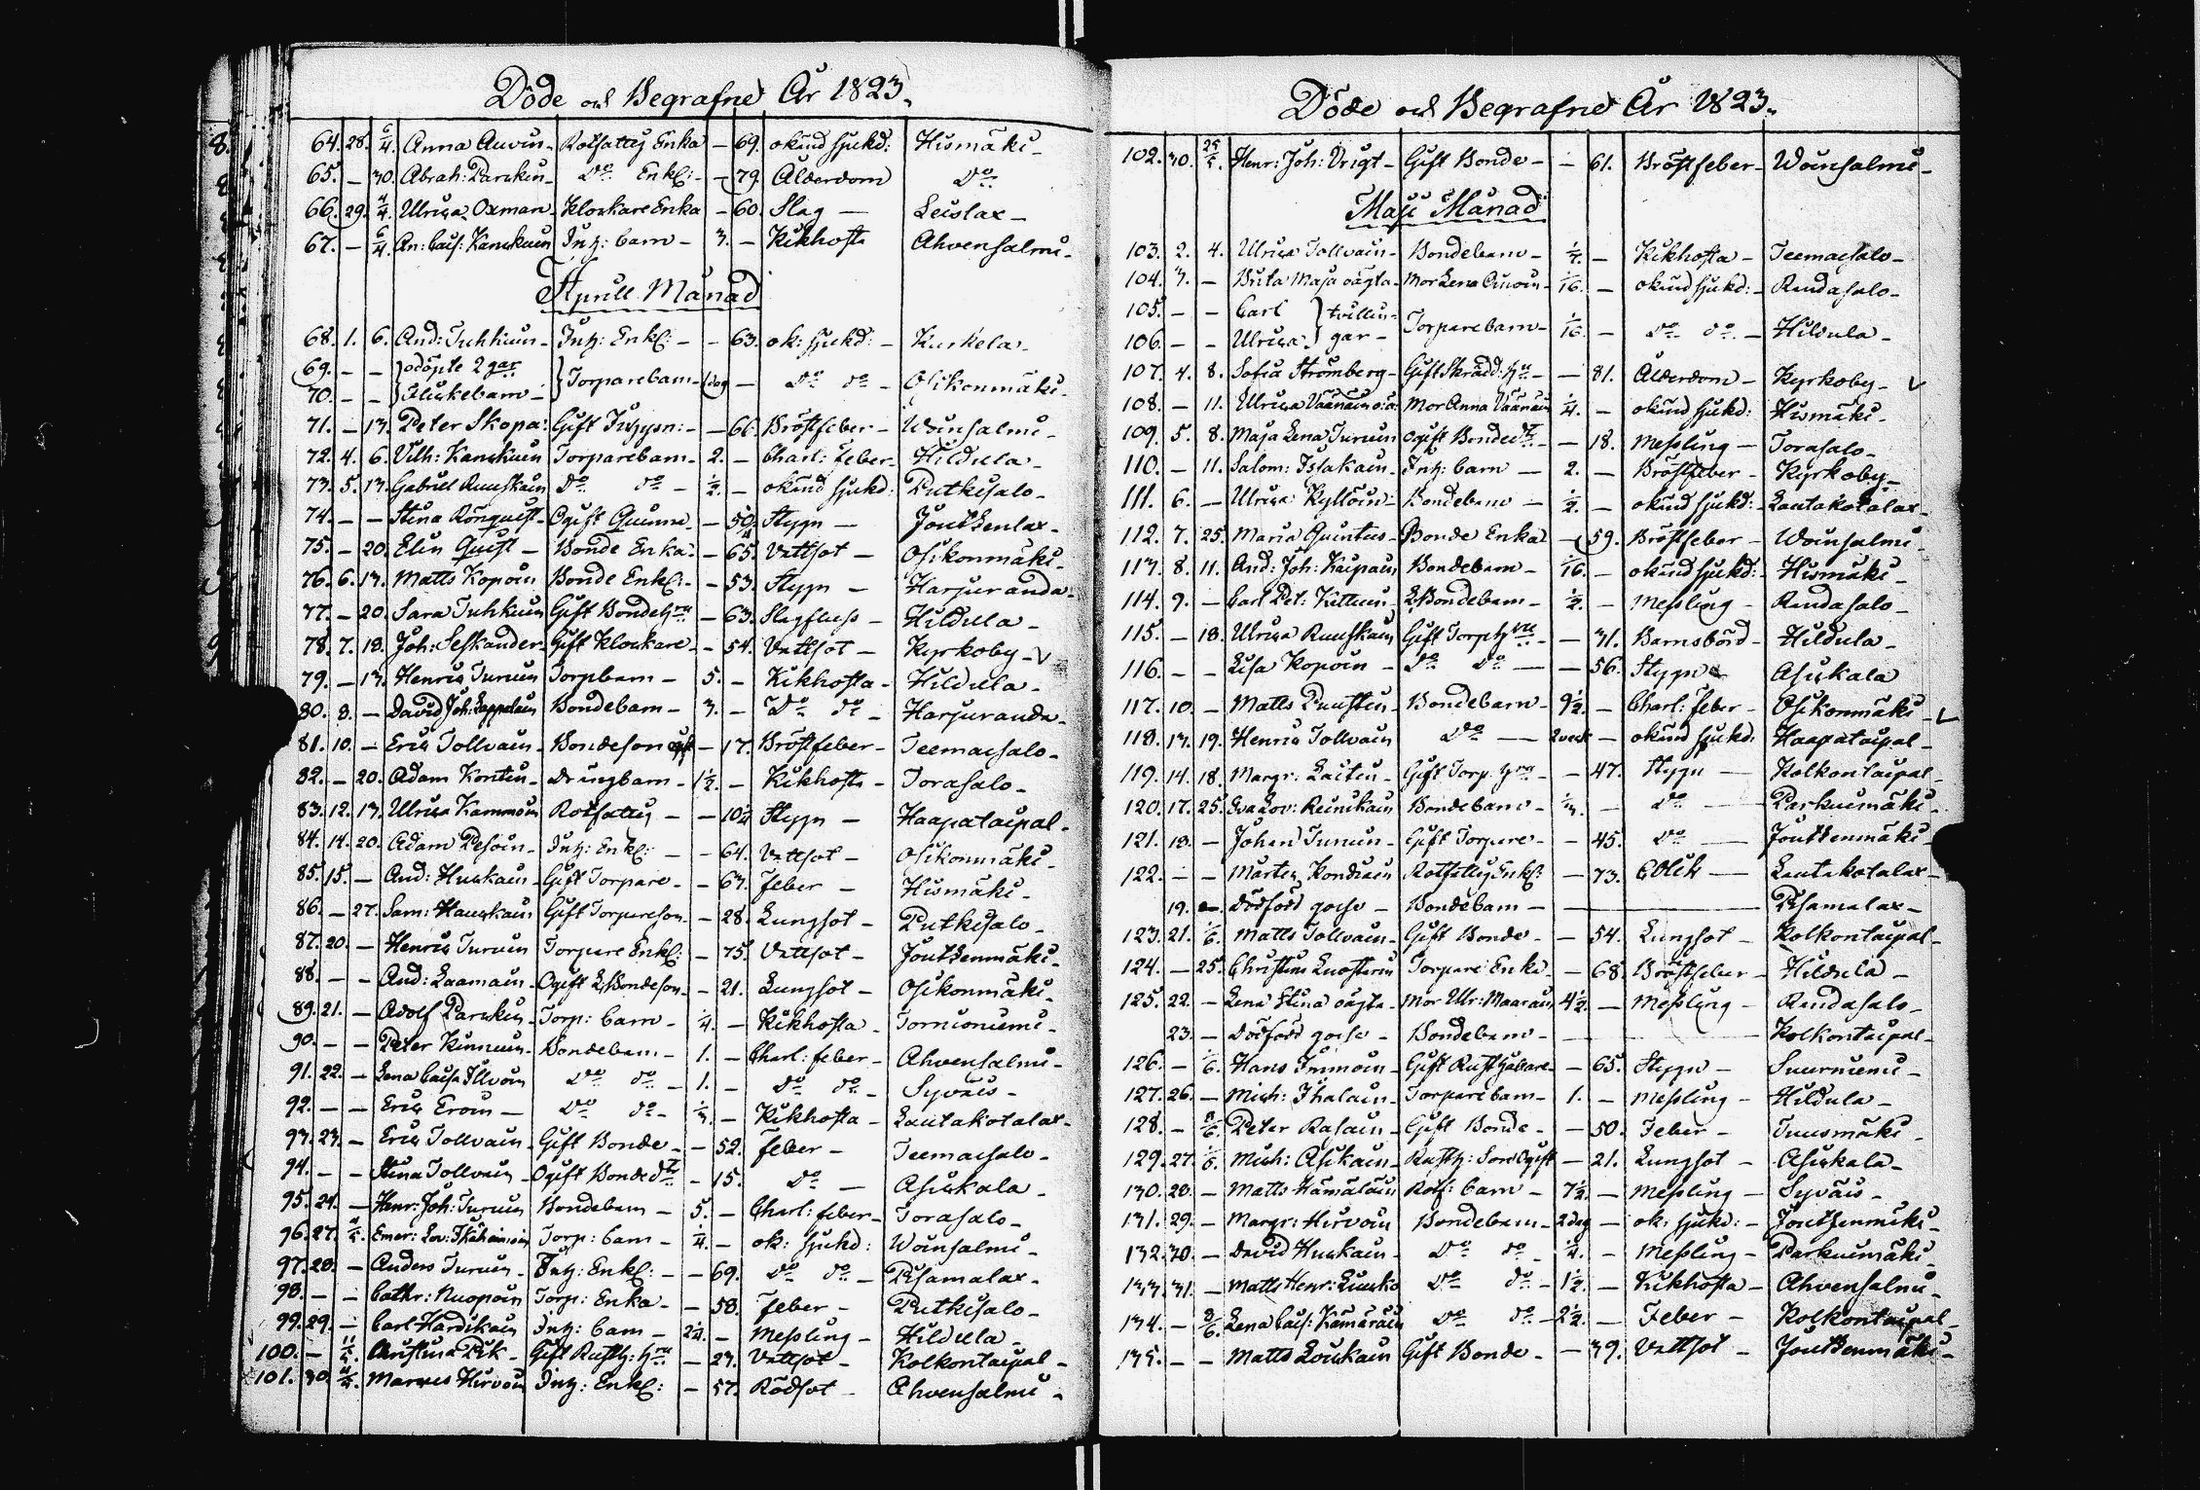 Döde och Begrafne År 1823.
64. 28. 6/4. Anna Auvin - Rotfattig Enka - 69. okänd sjukd: Hismäki -
65. - 30. Abrah: Parkin - Do Enkl: - 79. Ålderdom Do
66. 29. 1/4. Ulrica Oxman - Klockare Enka - 60. Slag - Leislax -
67. - 6/4. An: Cais: Kanskain Inh: barn - 3. - Kikhosta Ahvensalmi -
Aprill Månad
68. 1. 6. And: Tuhkuin - Inh: Enkl: - - 63. ok: sjukd: - Kurkela -
69. - - odöpte 2gar
70. - - Flickebarn - Torparebarn - 1 dag - Do do - Osikonmäki -
71. - 13. Peter Skopa: Gift - 66. Bröstfeber - Woinsalmi -
72. 4. 6. Vilh: Kanskain Torparebarn - 2. - Charl: feber - Hildula -
73. 5. 13. Gabriel Ruuskain Do do - 1/2. - okänd sjukd: Putkisalo -
74. - - Stina Rönquist - Ogift Quinna - - 50. Stygn - Joutsenlax -
75. - 20. Elin Quist - Bonde Enka - - 65. Vattsot - Osikonmäki -
76. 6. 13. Matts Kopoin Bonde Enkl: - - 53. Stygn - Harjuranda -
77. - 20. Sara Tuhkuin Gift Bondehru - 63. Slagfluss - Hildula -
78. 7. 13. Joh: Seskander - Gift Klockare - - 54. Vattsot - Kyrkoby -
79. - 13. Henric Turuin Torpbarn - 5. - Kikhosta - Hildula -
80. 8. - David Joh: Lappalain Bondebarn - 3. - Do do - Harjuranda -
81. 10. - Eric Tollvain - Bondeson ogift - 17. Bröstfeber - Teemassalo -
82. - 20. Adam Kontin - Drängbarn - 1 1/2. - Kikhosta - Torasalo -
83. 12. 13. Ulrica Kammoin Rotfattig - - 10 1/2 Stygn - Haapataipal -
84. 14. 20. Adam Pesoin - Inh: Enkl: - - 64. Vattsot - Osikonmäki -
85. 15. - And: Huskain - Gift Torpare - - 63. Feber - Hismäki -
86. - 27. Sam: Hauskain Gift Torpareson - 28. Lungsot - Putkisalo -
87. 20. - Henric Turuin Torpare Enkl: - 75. Vattsot - Joutsenmäki -
88. - - And: Laamain - Ogift L: Bondeson - 21. Lungsot - Osikonmäki -
89. 21. - Adolf Parkin - Torp: barn - 1/4. - Kikhosta - Tornioniemi -
90. - - Peter Kinnuin - Bondebarn - 1. - Charl: feber - Ahvensalmi -
91. 22. - Lena Caisa Illvoin Do do - 1. - Do do - Syväis -
92. - - Eric Eroin - Do do - 1/3. - Kikhosta - Lautakotalax -
93. 23. - Eric Tollvain - Gift Bonde - - 52. Feber - Teemassalo -
94. - - Stina Tollvain - Ogift Bondedtr - 15. Do - Asikkala -
95. 24. - Henr: Joh: Turuin Bondebarn - 5. - Charl: feber - Torasalo -
96. 27. Torp: barn - 1/4. - ok: sjukd: Woinsalmi -
97. 28. - Anders Turuin - Inh: Enkl: - - 69. Do do - Pisamalax -
98. - - Cathr: Nuopoin Torp: Enka - - 58. Feber - Putkisalo -
99. 29. - Carl Hardikain Inh: barn - 2 1/4. - Messling - Hildula -
100. - 11/5. Christina Pik - Gift Rusth: hru - 23. Vattsot - Kolkontaipal -
101. 30. Marcus Hirvoin Inh: Enkl: - 57. Rödsot - Ahvensalmi -
Döde och Begrafne År 1823.
102. 30. 25/5. Henr: Joh: Vrigt - Gift Bonde - - 61. Bröstfeber - Woinsalmi -
Maji Månad
103. 2. 4. Ulrica Tollvain - Bondebarn - 1/4. - Kikhosta - Teemassalo -
104. 3. - Brita Maja oägta - Mor Lena Auvoin - 1/16. - okänd sjukd: - Randasalo -
105. - - Carl tvillin-
106. - - Ulrica gar - Torparebarn - 1/16. - Do do - Hildula -
107. 4. 8. Sofia Strömberg - Gift Skrädd: hru - - 81. Ålderdom - Kyrkoby -
108. - 11. Ulrica Väänäin o:ä: Mor Anna Väänäin 1/4. - okänd sjukd: Hismäki -
109. 5. 8. Maja Lena Turuin Ogift Bondedtr - - 18. Messling - Torasalo -
110. - 11. Salom: Islakain - Inh: barn - 2. - Bröstfeber - Kyrkoby -
111. 6. - Ulrica Kylloin: Bondebarn - 1/2. - okänd sjukd: - Lautakotalax -
112. 7. 25. Maria Quintus - Bonde Enka - 59. Bröstfeber - Woinsalmi -
113. 8. 11. And: Joh: Kaipain Bondebarn - 1/16. - okänd sjukd: - Hismäki -
114. 9. - Carl Pet: Kettuin - L: Bondebarn - 1/2. - Messling - Randasalo -
115. - 18. Ulrica Ruuskain Gift Torphru - - 31. Barnsbörd - Hildula -
116. - - Lisa Kopoin - Do Do - - 56. Stygn Asikkala
117. 10. - Matts Puustin - Bondebarn - 9 1/2. - Charl: feber - Osikonmäki -
118. 13. 19. Henric Tollvain Do - 2 veck - okänd sjukd: Haapataipal -
119. 14. 18. Margr: Laitin - Gift Torp: hru - - 47. Stygn - Kolkontaipal -
120. 17. 25. Eva Lov: Reinikain Bondebarn - 1/3. - Do - Parkuimäki -
121. 18. - Johan Turuin - Gift Torpare - - 45. Do - Joutsenmäki -
122. - - Mårten Kondiain Rotfattig Enkl: - 73. Colik - Lautakotalax -
19. - Dödfödd gosse - Bondebarn - Pisamalax -
123. 21. 1/6. Matts Tollvain - Gift Bonde - - 54. Lungsot - Kolkontaipal -
124. - 25. Christina Luostarin Torpare Enka - - 68. Bröstfeber - Hildula -
125. 22. - Lena Stina oägta - Mor Ulr: Maarain 4 1/2. - Messling - Randasalo -
23. - Dödfödd gosse - Bondebarn - Kolkontaipal -
126. - 1/6. Hans Immoin - Gift Rusthållare - - 65. Stygn - Suurniemi -
127. 26. - Mich: Ihalain - Torparebarn - 1. - Messling - Hildula -
128. - 8/6. Peter Rasain - Gift Bonde - - 50. Feber - Tuusmäki -
129. 27. 1/6. Mich: Asikain - Rusth: Son Ogift - 21. Lungsot - Asikkala -
130. 28. - Matts Hämäläin Rotf: barn - 7 1/2. - Messling - Syväis -
131. 29. - Margr: Hirvoin Bondebarn - 2 dag - ok: sjukd: - Joutsenmäki -
132. 30. - David Huskain - Do do - 1/4. - Messling - Parkuimäki -
133. 31. - Matts Henr: Do do - 1 1/2. - Kikhosta - Ahvensalmi -
134. - 8/6. Lena Cais: Kämäräin Do do - 2 1/2. - Feber - Kolkontaipal -
135. - - Matts Loukain Gift Bonde - - 39. Vattsot - Joutsenmäki -